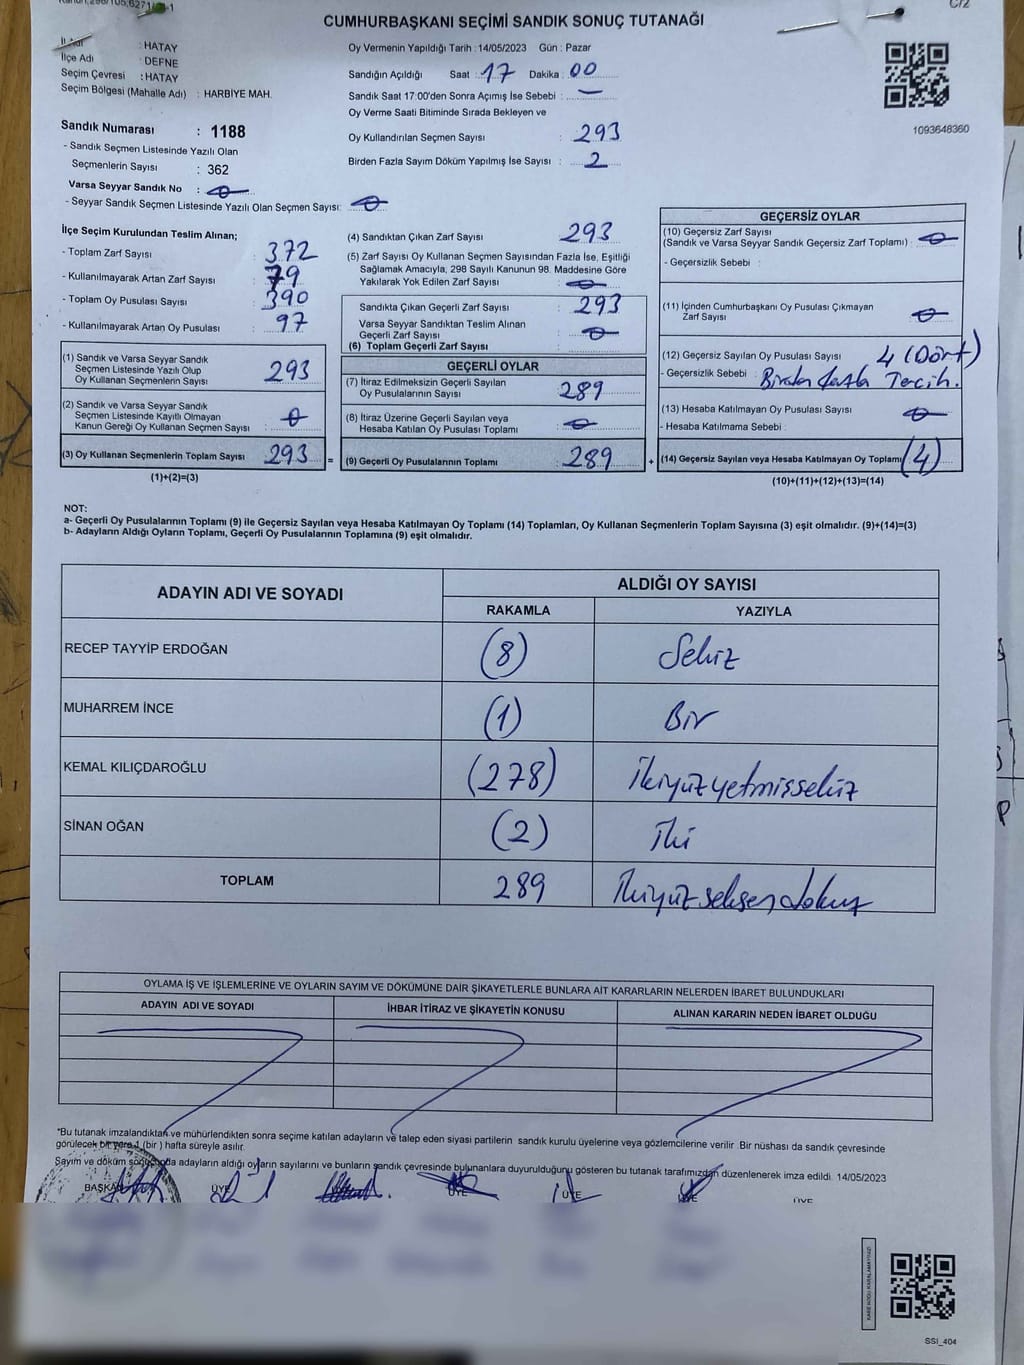 CUMHURBAŞKANI SEÇİMİ SANDIK SONUÇ TUTANAĞI
İl Adı : HATAY
İlçe Adı : DEFNE
Seçim Çevresi : HATAY
Seçim Bölgesi (Mahalle Adı) : HARBİYE MAH.
Sandık Numarası : 1188
- Sandık Seçmen Listesinde Yazılı Olan
Seçmenlerin Sayısı : 362
Varsa Seyyar Sandık No : 0
- Seyyar Sandık Seçmen Listesinde Yazılı Olan Seçmen Sayısı: 0
Oy Vermenin Yapıldığı Tarih : 14/05/2023 Gün : Pazar
Sandığın Açıldığı Saat : 17 Dakika : 00
Sandık Saat 17:00'den Sonra Açımış İse Sebebi : —
Oy Verme Saati Bitiminde Sırada Bekleyen ve
Oy Kullandırılan Seçmen Sayısı : 293
Birden Fazla Sayım Döküm Yapılmış İse Sayısı : 2
1093648360
İlçe Seçim Kurulundan Teslim Alınan;
- Toplam Zarf Sayısı : 372
- Kullanılmayarak Artan Zarf Sayısı : 79
- Toplam Oy Pusulası Sayısı : 390
- Kullanılmayarak Artan Oy Pusulası : 97
(1) Sandık ve Varsa Seyyar Sandık
Seçmen Listesinde Yazılı Olup
Oy Kullanan Seçmenlerin Sayısı : 293
(2) Sandık ve Varsa Seyyar Sandık
Seçmen Listesinde Kayıtlı Olmayan
Kanun Gereği Oy Kullanan Seçmen Sayısı : 0
(3) Oy Kullanan Seçmenlerin Toplam Sayısı 293 =
(1)+(2)=(3)
(4) Sandıktan Çıkan Zarf Sayısı : 293
(5) Zarf Sayısı Oy Kullanan Seçmen Sayısından Fazla İse, Eşitliği
Sağlamak Amacıyla, 298 Sayılı Kanunun 98. Maddesine Göre
Yakılarak Yok Edilen Zarf Sayısı : 0
Sandıkta Çıkan Geçerli Zarf Sayısı : 293
Varsa Seyyar Sandıktan Teslim Alınan
Geçerli Zarf Sayısı : 0
(6) Toplam Geçerli Zarf Sayısı :
GEÇERLİ OYLAR
(7) İtiraz Edilmeksizin Geçerli Sayılan
Oy Pusulalarının Sayısı : 289
(8) İtiraz Üzerine Geçerli Sayılan veya
Hesaba Katılan Oy Pusulası Toplamı : 0
(9) Geçerli Oy Pusulalarının Toplamı : 289 +
GEÇERSİZ OYLAR
(10) Geçersiz Zarf Sayısı
(Sandık ve Varsa Seyyar Sandık Geçersiz Zarf Toplamı) : 0
- Geçersizlik Sebebi :
(11) İçinden Cumhurbaşkanı Oy Pusulası Çıkmayan
Zarf Sayısı : 0
(12) Geçersiz Sayılan Oy Pusulası Sayısı : 4 (Dört)
- Geçersizlik Sebebi : Birden fazla Tercih.
(13) Hesaba Katılmayan Oy Pusulası Sayısı : 0
- Hesaba Katılmama Sebebi :
(14) Geçersiz Sayılan veya Hesaba Katılmayan Oy Toplamı (4)
(10)+(11)+(12)+(13)=(14)
NOT:
a- Geçerli Oy Pusulalarının Toplamı (9) ile Geçersiz Sayılan veya Hesaba Katılmayan Oy Toplamı (14) Toplamları, Oy Kullanan Seçmenlerin Toplam Sayısına (3) eşit olmalıdır. (9)+(14)=(3)
b- Adayların Aldığı Oyların Toplamı, Geçerli Oy Pusulalarının Toplamına (9) eşit olmalıdır.
ADAYIN ADI VE SOYADI ALDIĞI OY SAYISI
RAKAMLA YAZIYLA
RECEP TAYYİP ERDOĞAN (8) Sekiz
MUHARREM İNCE (1) Bir
KEMAL KILIÇDAROĞLU (278) İkiyüzyetmişsekiz
SİNAN OĞAN (2) İki
TOPLAM 289 İkiyüzseksendokuz
OYLAMA İŞ VE İŞLEMLERİNE VE OYLARIN SAYIM VE DÖKÜMÜNE DAİR ŞİKAYETLERLE BUNLARA AİT KARARLARIN NELERDEN İBARET BULUNDUKLARI
ADAYIN ADI VE SOYADI İHBAR İTİRAZ VE ŞİKAYETİN KONUSU ALINAN KARARIN NEDEN İBARET OLDUĞU
*Bu tutanak imzalandıktan ve mühürlendikten sonra seçime katılan adayların ve talep eden siyasi partilerin sandık kurulu üyelerine veya gözlemcilerine verilir. Bir nüshası da sandık çevresinde
görülecek bir yere 1 (bir ) hafta süreyle asılır.
Sayım ve döküm sonucunda adayların aldığı oyların sayılarını ve bunların sandık çevresinde bulunanlara duyurulduğunu gösteren bu tutanak tarafımızdan düzenlenerek imza edildi. 14/05/2023
BAŞKAN ÜYE ÜYE ÜYE ÜYE ÜYE
SSI_404